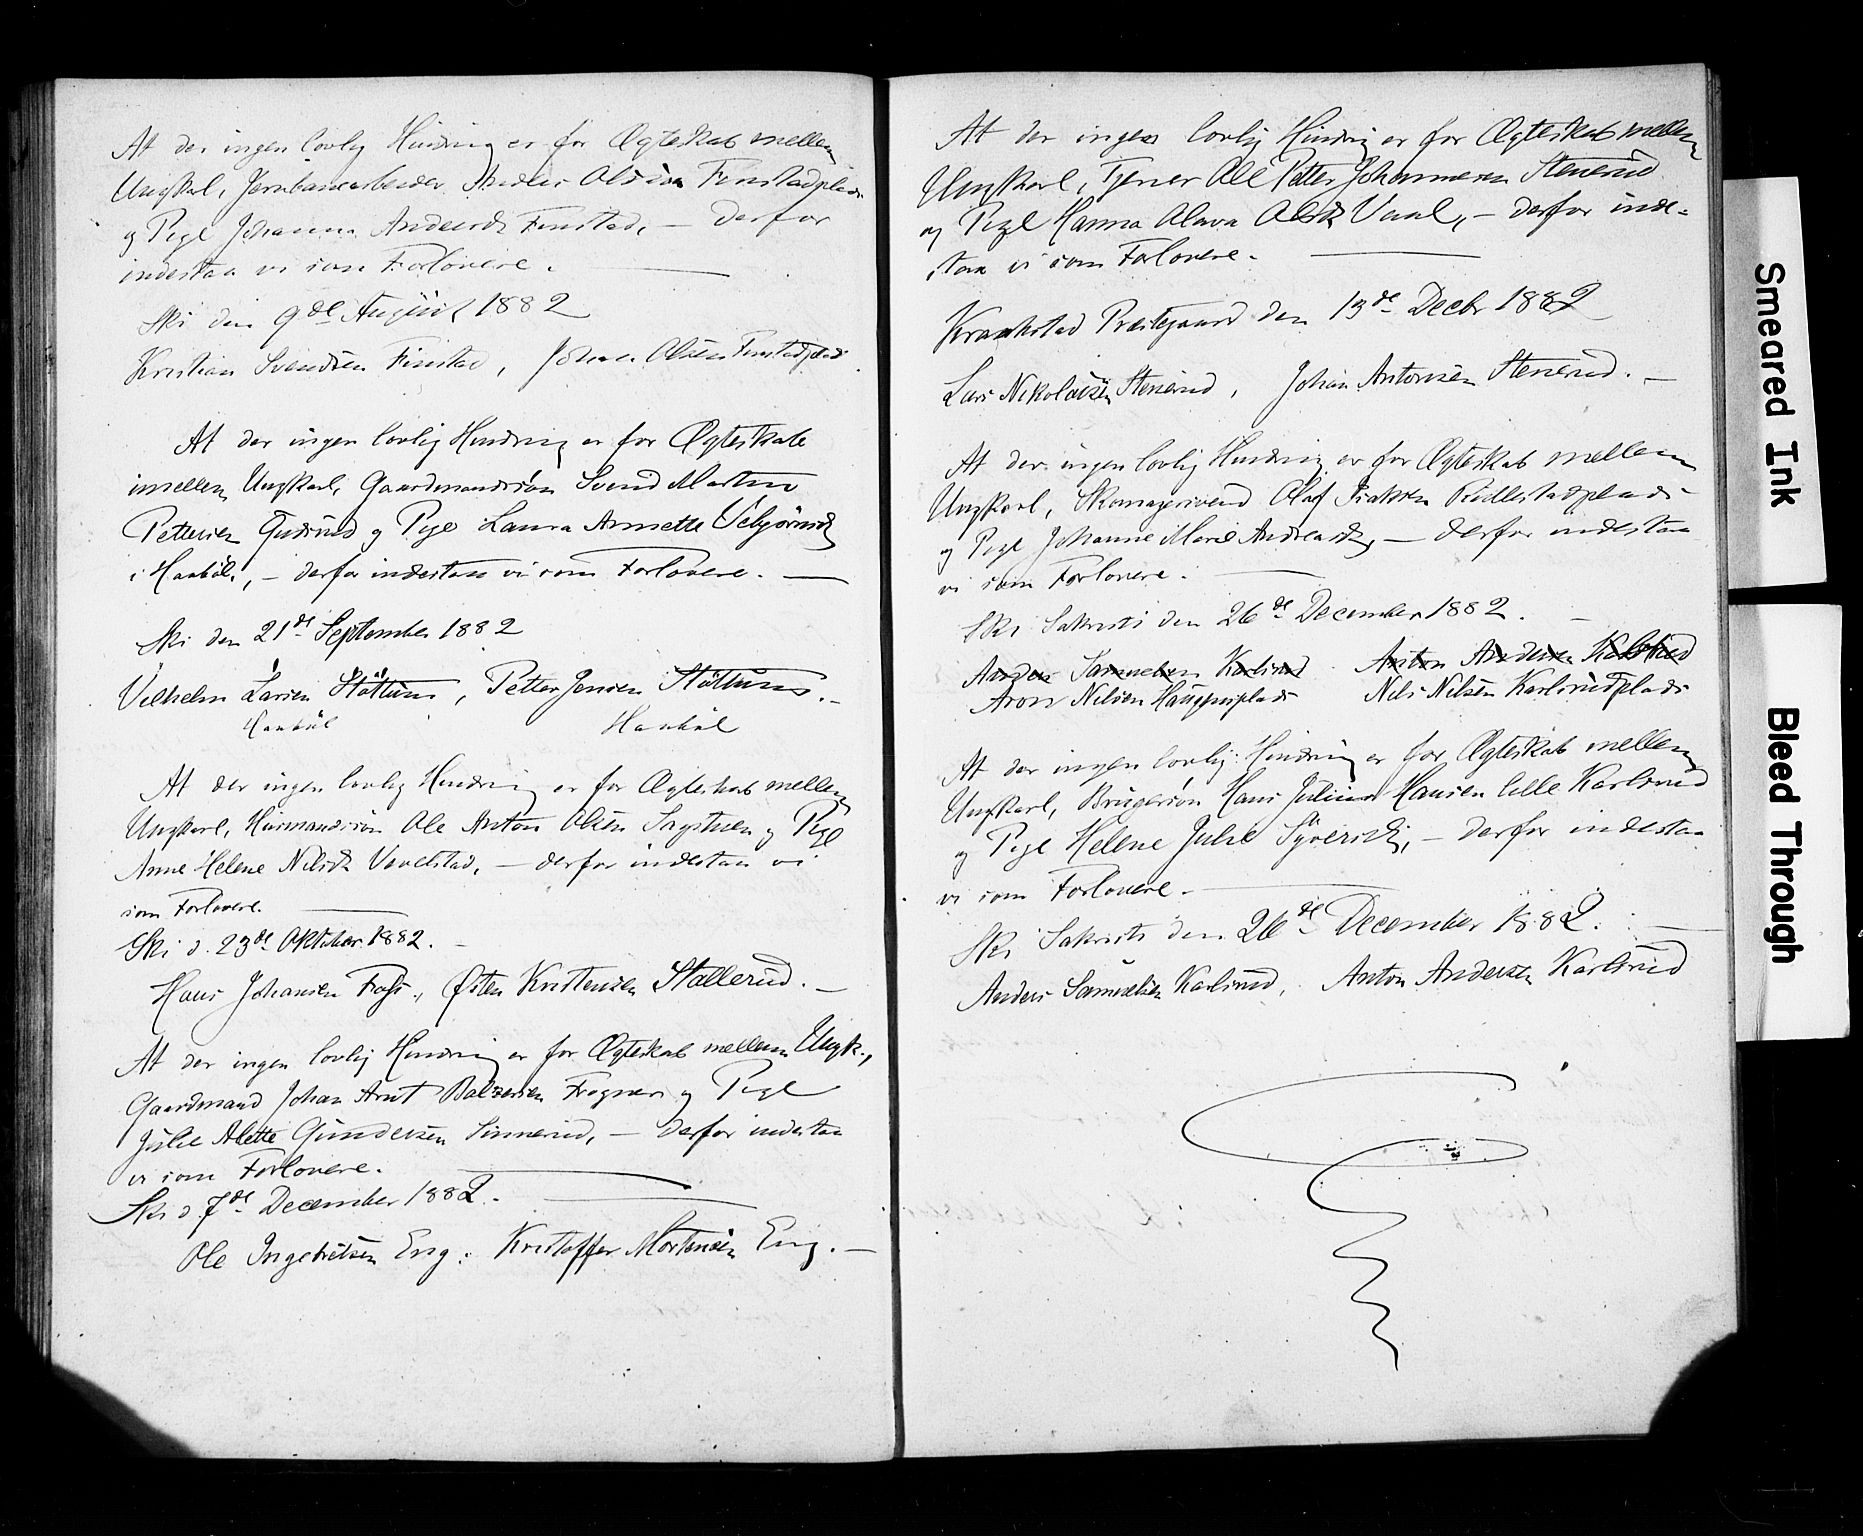 At der ingen lovlig Hindring er for Ægteskab mellem
Ungkarl, Jernbanearbeider, Anders Olsen Finstadplads
og Pige Johanne Andersdt Finstad, — derfor
indestaa vi som Forlovere. —
Ski den 9de August 1882
Kristian Svendsen Finstad, Johan Olsen Finstadplads
At der ingen lovlig Hindring er for Ægteskab
imellem Ungkarl, Gaardmandssøn Svend Martin
Pettersen Gudrud og Pige Laura Annette Vebjørnsdt
i Haabøl, — derfor indestaa vi som Forlovere. —
Ski den 21de September 1882
Vilhelm Larsen Støttum, Petter Jensen Støttum. —
Haabøl Haabøl
At der ingen lovlig Hindring er for Ægteskab mellem
Ungkarl, Husmandssøn Ole Anton Olsen og Pige
Anne Helene Nilsdt Vevelstad, — derfor indestaa vi
som Forlovere. —
Ski d. 23de Oktober 1882. —
Hans Johansen Foss, Østen Kristensen Stallerud. —
At der ingen lovlig Hindring er for Ægteskab mellem Ungk.,
Gaardmand Johan Arnt Balzersen Frogner og Pige
Julie Alette Gundersen Sinnerud, — derfor indestaa
vi som Forlovere. —
Ski d. 7de December 1882. —
Ole Ingebretsen Eng, Kristoffer Mortensen Eng. —
At der ingen lovlig Hindring er for Ægteskab mellem
Ungkarl, Tjener Ole Petter Johannesen Stenerud
og Pige Hanna Olava Olsdt Vaal, — derfor inde-
staa vi som Forlovere. —
Kraakstad Præstegaard den 13de Decbr 1882
Lars Nikolaisen Stenerud, Johan Antonsen Stenerud. —
At der ingen lovlig Hindring er for Ægteskab mellem
Ungkarl, Skomagersvend Olaf Isaksen Ridlestadplads
og Pige Johanne Marie Andreasdt, — derfor indestaa
vi som Forlovere. —
Ski Sakristi den 26de December 1882. —
Anders Samuelsen Karlsrud Anton Andersen Karlsrud
Aron Nilsen Haugenplads Nils Nilsen Karlsrudplads
At der ingen lovlig Hindring er for Ægteskab mellem
Ungkarl, Brugersøn Hans Julius Hansen lille Karlsrud
og Pige Helene Julie Syversdt, — derfor indestaa
vi som Forlovere. —
Ski Sakristi den 26de December 1882. —
Anders Samuelsen Karlsrud, Anton Andersen Karlsrud
Smeared Ink
Bleed Through